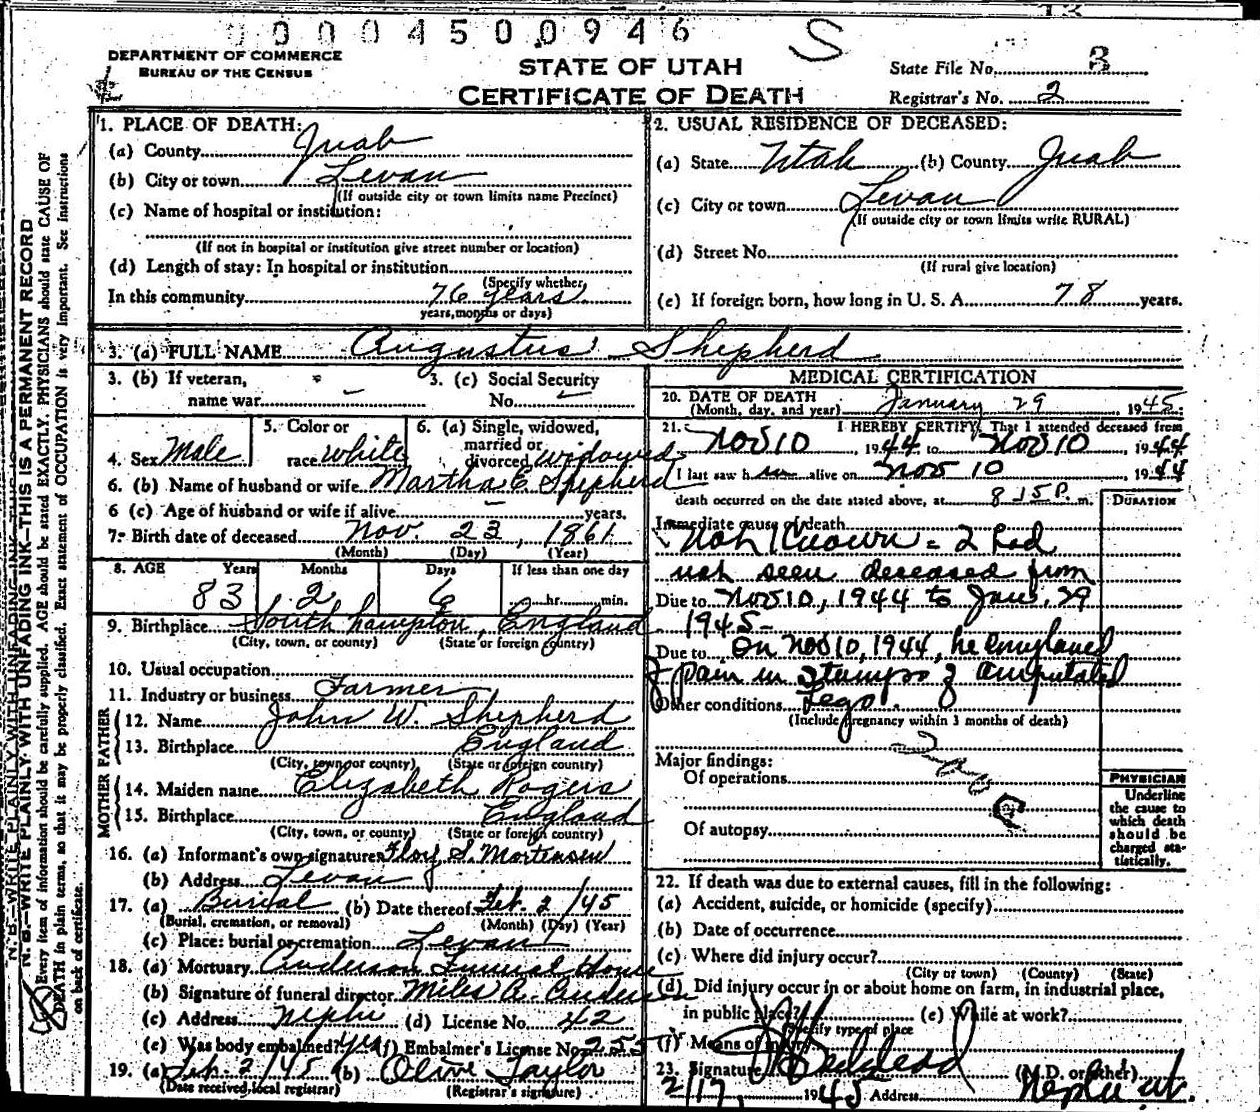 00004500946 S
DEPARTMENT OF COMMERCE
BUREAU OF THE CENSUS
STATE OF UTAH
CERTIFICATE OF DEATH
State File No. 3
Registrar's No. 2
1. PLACE OF DEATH:
(a) County Juab
(b) City or town Levan
(If outside city or town limits name Precinct)
(c) Name of hospital or institution:
(If not in hospital or institution give street number or location)
(d) Length of stay: In hospital or institution
(Specify whether
In this community 76 years
years, months or days)
2. USUAL RESIDENCE OF DECEASED:
(a) State Utah (b) County Juab
(c) City or town Levan
(If outside city or town limits write RURAL)
(d) Street No.
(If rural give location)
(e) If foreign born, how long in U. S. A. 78 years.
3. (a) FULL NAME Augustus Shepherd
3. (b) If veteran, name war - 3. (c) Social Security No. -
4. Sex Male 5. Color or race white 6. (a) Single, widowed, married or divorced widowed
6. (b) Name of husband or wife Martha E. Shepherd
6 (c) Age of husband or wife if alive - years.
7. Birth date of deceased Nov. 23, 1861
(Month) (Day) (Year)
8. AGE Years Months Days If less than one day
83 2 6 hr. min.
9. Birthplace Southhampton, England
(City, town, or county) (State or foreign country)
10. Usual occupation
11. Industry or business Farmer
FATHER
12. Name John W. Shepherd
13. Birthplace England
(City, town or county) (State or foreign country)
MOTHER
14. Maiden name Elizabeth Rogers
15. Birthplace England
(City, town, or county) (State or foreign country)
16. (a) Informant's own signature Floy S. Mortensen
(b) Address Levan
17. (a) Burial (b) Date thereof Feb. 2/45
(Burial, cremation, or removal) (Month) (Day) (Year)
(c) Place: burial or cremation Levan
18. (a) Mortuary Anderson Funeral Home
(b) Signature of funeral director Miles R. Anderson
(c) Address Nephi (d) License No. 42
(e) Was body embalmed? yes (f) Embalmer's License No. 255
19. (a) Feb. 2/45 (b) Olive Taylor
(Date received local registrar) (Registrar's signature)
MEDICAL CERTIFICATION
20. DATE OF DEATH
(Month, day, and year) January 29 1945
21. I HEREBY CERTIFY, That I attended deceased from
Nov 10, 1944 to Nov 10, 1944
I last saw h im alive on Nov 10 1944
death occurred on the date stated above, at 8-15 P. m.
DURATION
Immediate cause of death
Not Known = I had
not seen deceased from
Due to Nov 10, 1944 to Jan. 29
1945-
Due to On Nov 10, 1944, he complained
of pain in stumps of amputated
Other conditions Legs.
(Include pregnancy within 3 months of death)
Major findings:
Of operations
Of autopsy
PHYSICIAN
Underline
the cause to
which death
should be
charged sta-
tistically.
22. If death was due to external causes, fill in the following:
(a) Accident, suicide, or homicide (specify)
(b) Date of occurrence
(c) Where did injury occur?
(City or town) (County) (State)
(d) Did injury occur in or about home on farm, in industrial place,
in public place? (e) While at work?
(Specify type of place
(f) Means of injury
23. Signature (M.D. or other)
2/17, 1945 Address Nephi Ut.
N. B.—WRITE PLAINLY WITH UNFADING INK—THIS IS A PERMANENT RECORD
Every item of information should be carefully supplied. AGE should be stated EXACTLY. PHYSICIANS should state CAUSE OF
DEATH in plain terms, so that it may be properly classified. Exact statement of OCCUPATION is very important. See Instructions
on back of certificate.